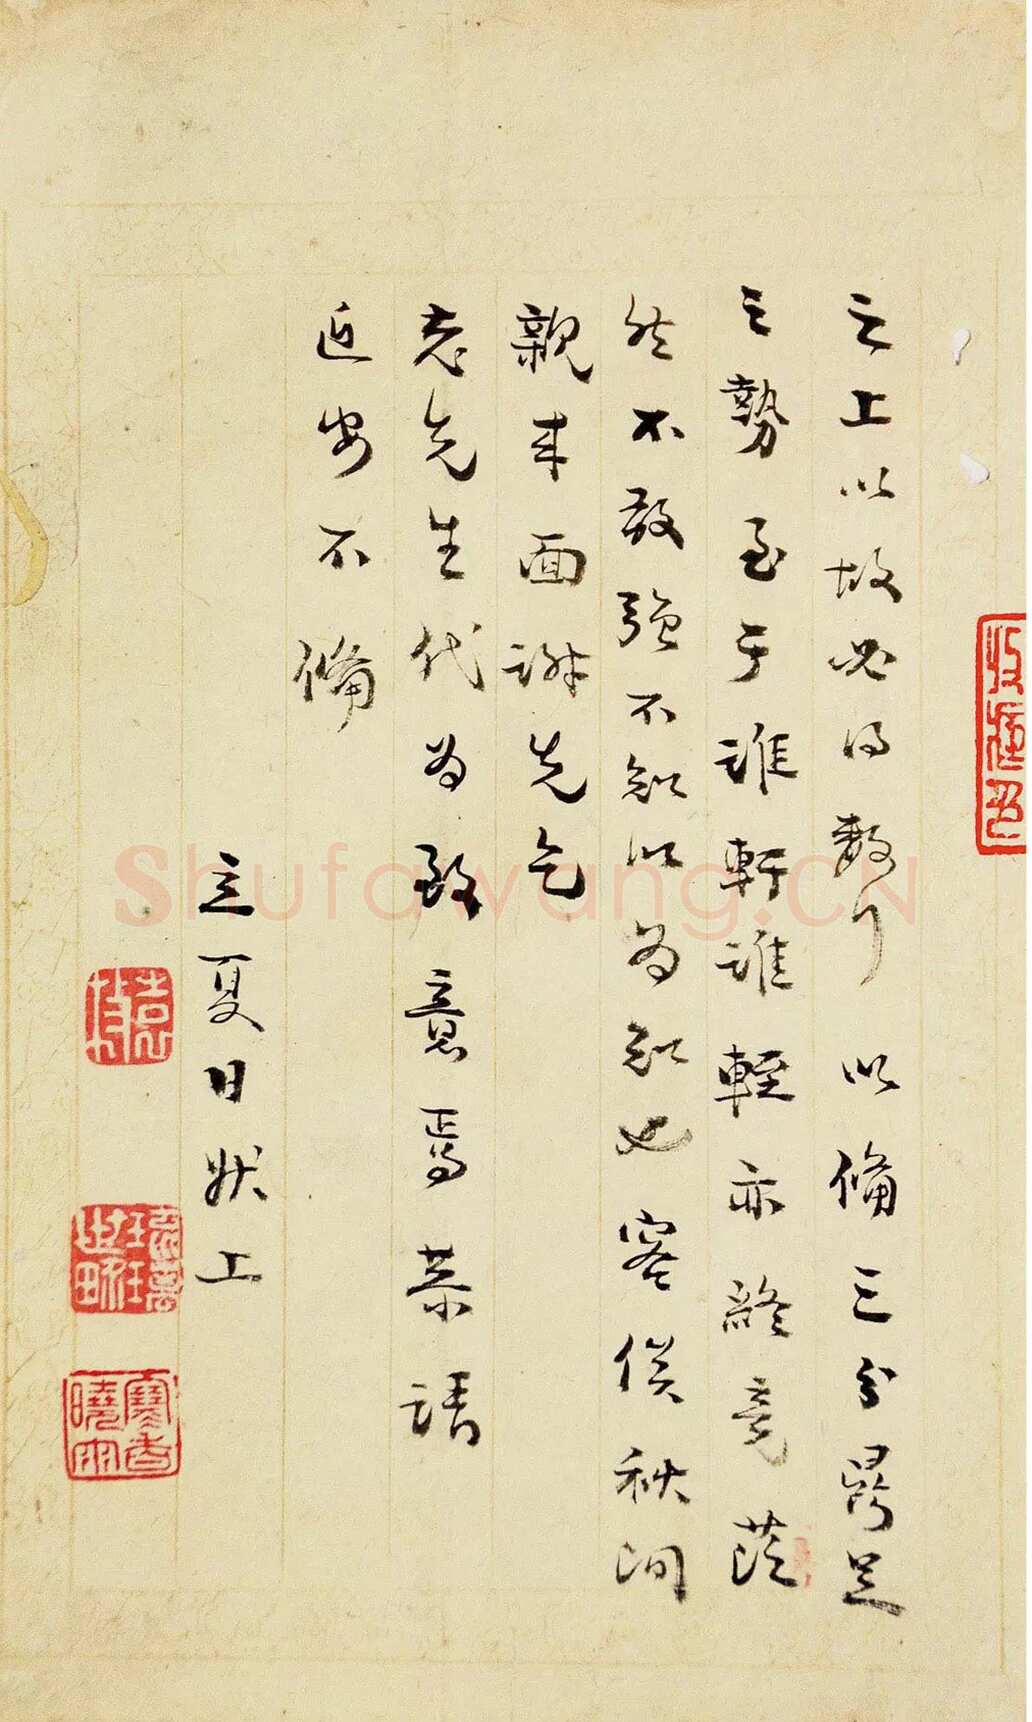 之上以故必得数行以備三分鼎足
之勢至于誰軒誰輊亦終竟茫
然不敢強不知以为知也容俟秋間
親来面謝先乞
老先生代为致意焉恭請
近安不備
立夏日狀上
寒香
曉雨
Shufawang.CN